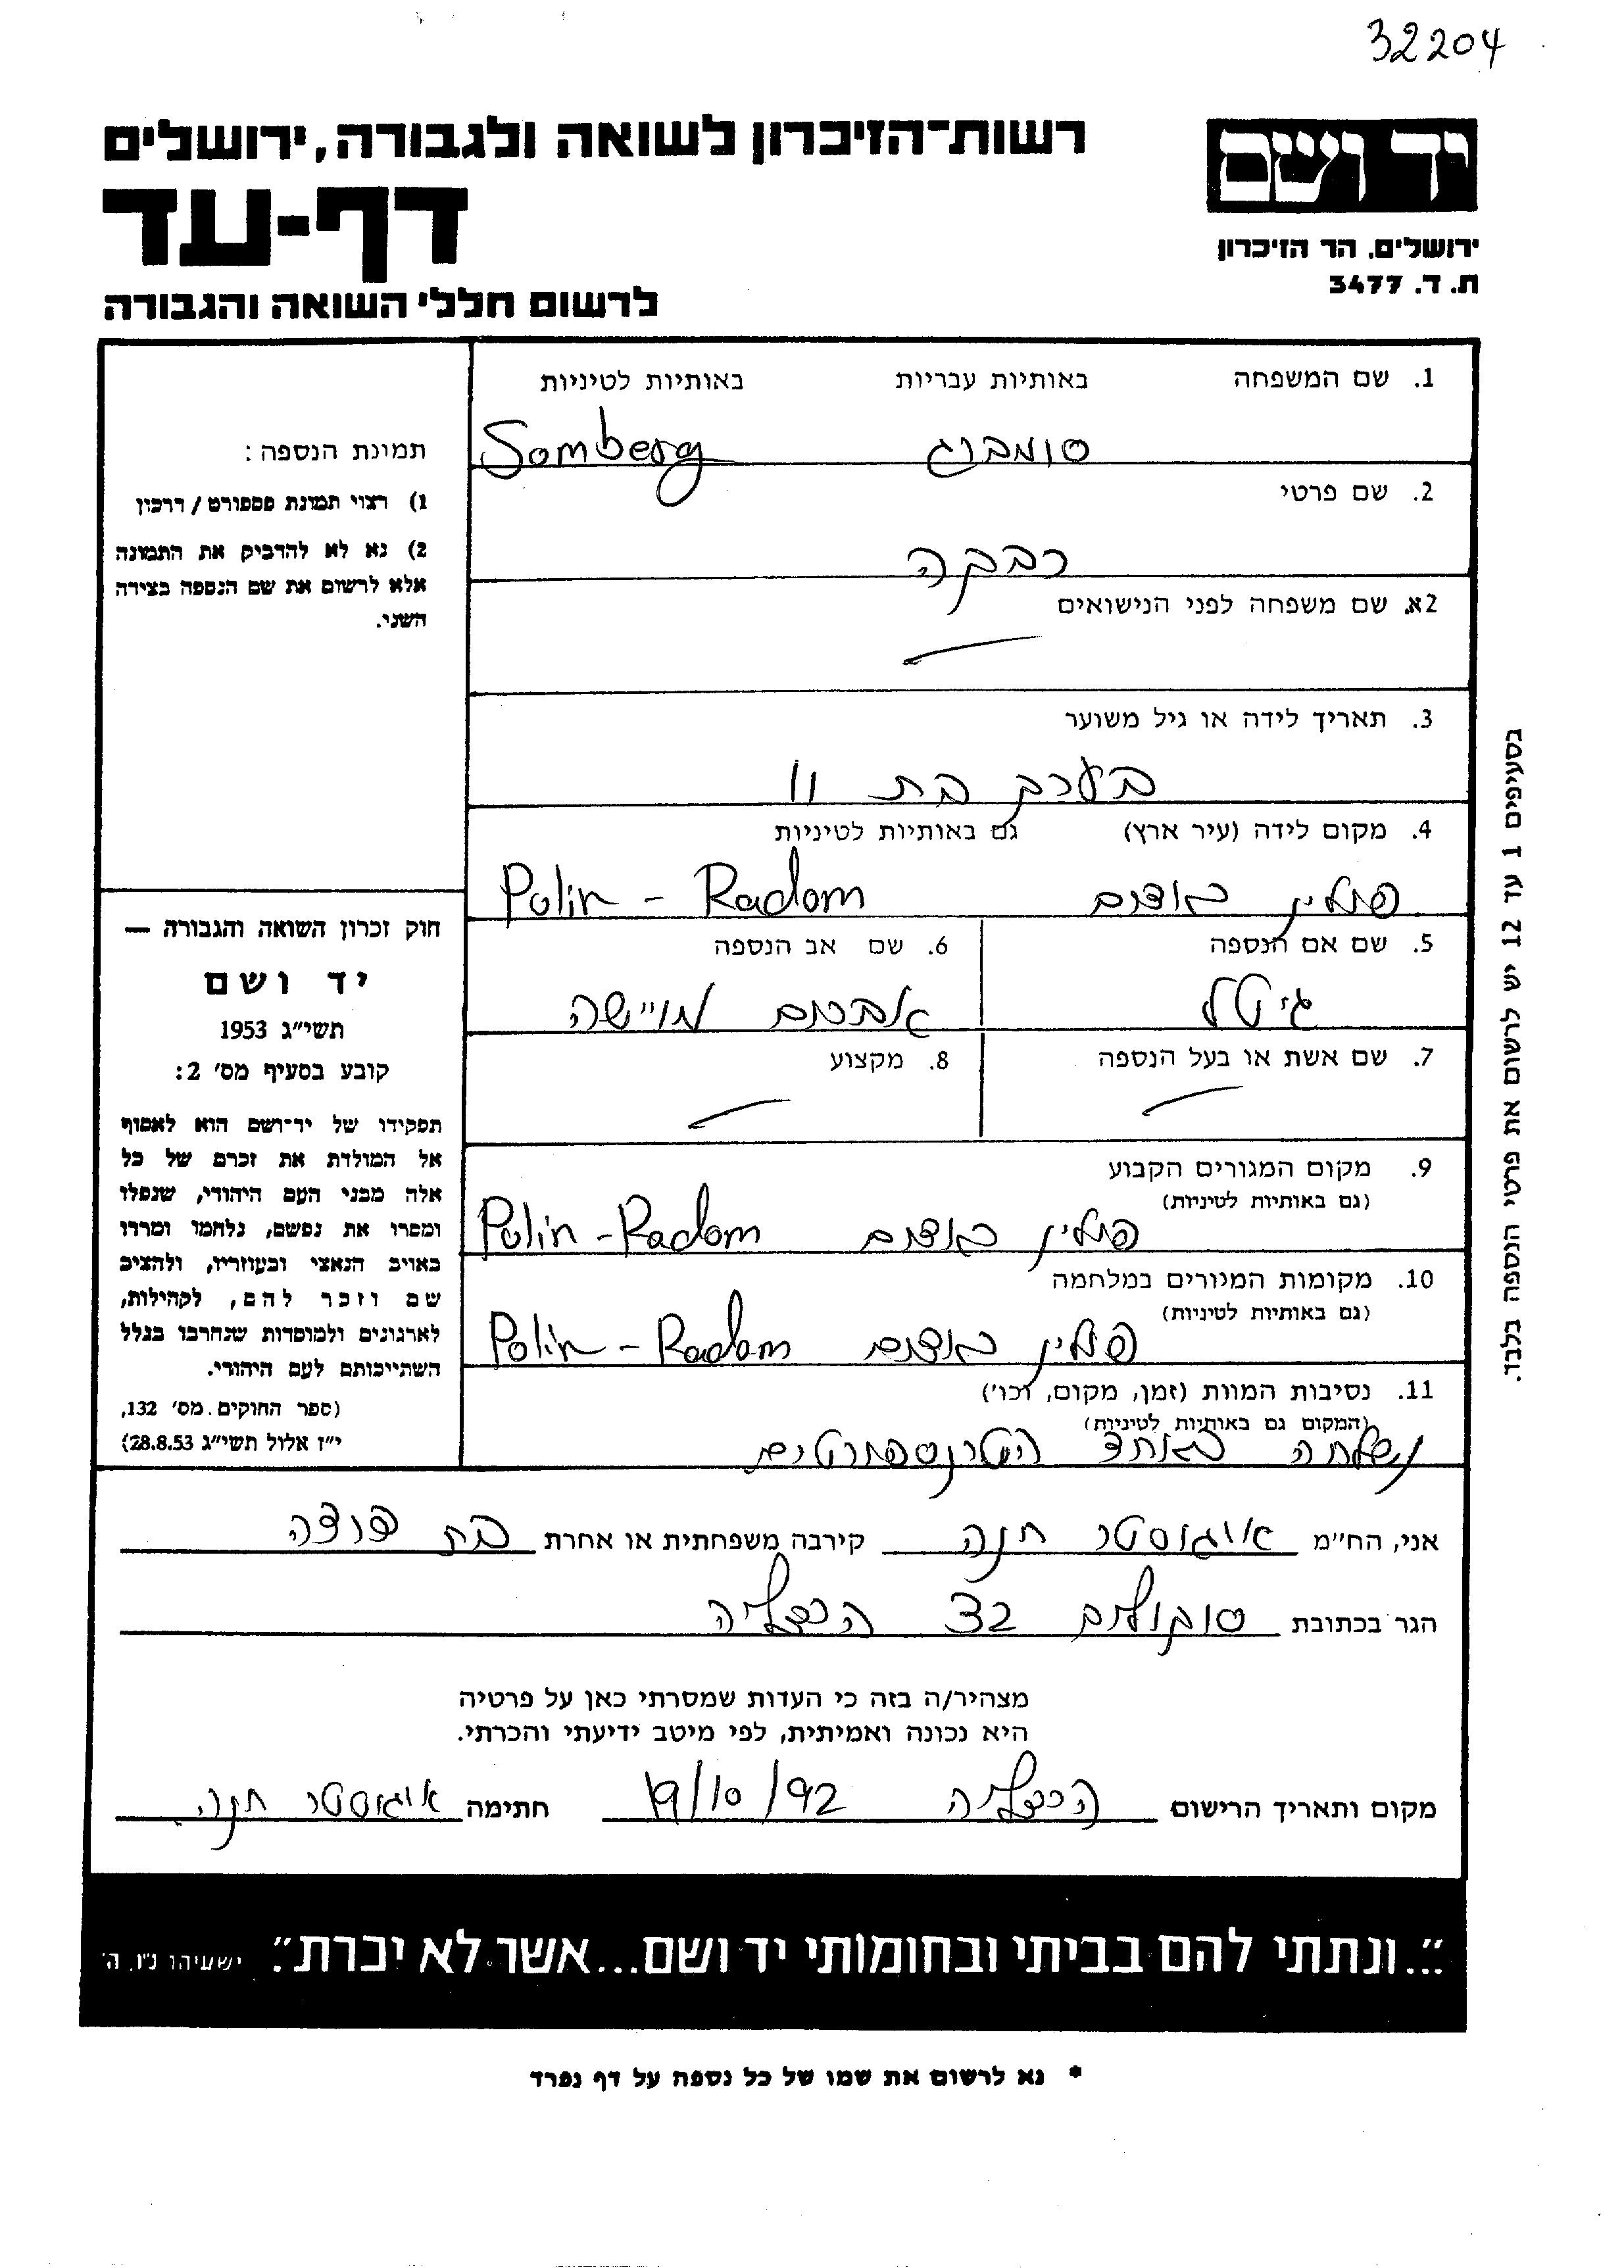 32204
יד ושם
ירושלים. הר הזיכרון
ת. ד. 3477
רשות-הזיכרון לשואה ולגבורה, ירושלים
דף-עד
לרשום חללי השואה והגבורה
תמונת הנספה:
1) רצוי תמונת פספורט / דרכון
2) נא לא להדביק את התמונה
אלא לרשום את שם הנספה בצידה
השני.
חוק זכרון השואה והגבורה —
יד ושם
תשי"ג 1953
קובע בסעיף מס' 2:
תפקידו של יד-ושם הוא לאסוף
אל המולדת את זכרם של כל
אלה מבני העם היהודי, שנפלו
ומסרו את נפשם, נלחמו ומרדו
באויב הנאצי ובעוזריו, ולהציב
שם וזכר להם, לקהילות,
לארגונים ולמוסדות שנחרבו בגלל
השתייכותם לעם היהודי.
(ספר החוקים מס' 132,
י"ז אלול תשי"ג 28.8.53)
1. שם המשפחה באותיות עבריות באותיות לטיניות
סומברג Somberg
2. שם פרטי
רבקה
2א. שם משפחה לפני הנישואים
3. תאריך לידה או גיל משוער
בערך בת 11
4. מקום לידה (עיר ארץ) גם באותיות לטיניות
פולין ראדום Polin - Radom
5. שם אם הנספה 6. שם אב הנספה
גיטל אברהם מויישה
7. שם אשת או בעל הנספה 8. מקצוע
9. מקום המגורים הקבוע
(גם באותיות לטיניות)
פולין ראדום Polin - Radom
10. מקומות המגורים במלחמה
(גם באותיות לטיניות)
פולין ראדום Polin - Radom
11. נסיבות המוות (זמן, מקום, וכו')
(המקום גם באותיות לטיניות)
נשלחה באחד הטרנספורטים
אני, הח"מ אוגוסטר חנה קירבה משפחתית או אחרת בת דודה
הגר בכתובת סוקולוב 23 הרצליה
מצהיר/ה בזה כי העדות שמסרתי כאן על פרטיה
היא נכונה ואמיתית, לפי מיטב ידיעתי והכרתי.
מקום ותאריך הרישום הרצליה 19/10/92 חתימה אוגוסטר חנה
בסעיפים 1 עד 12 יש לרשום את פרטי הנספה בלבד.
"...ונתתי להם בביתי ובחומותי יד ושם...אשר לא יכרת". ישעיהו נ"ו, ה'
* נא לרשום את שמו של כל נספה על דף נפרד